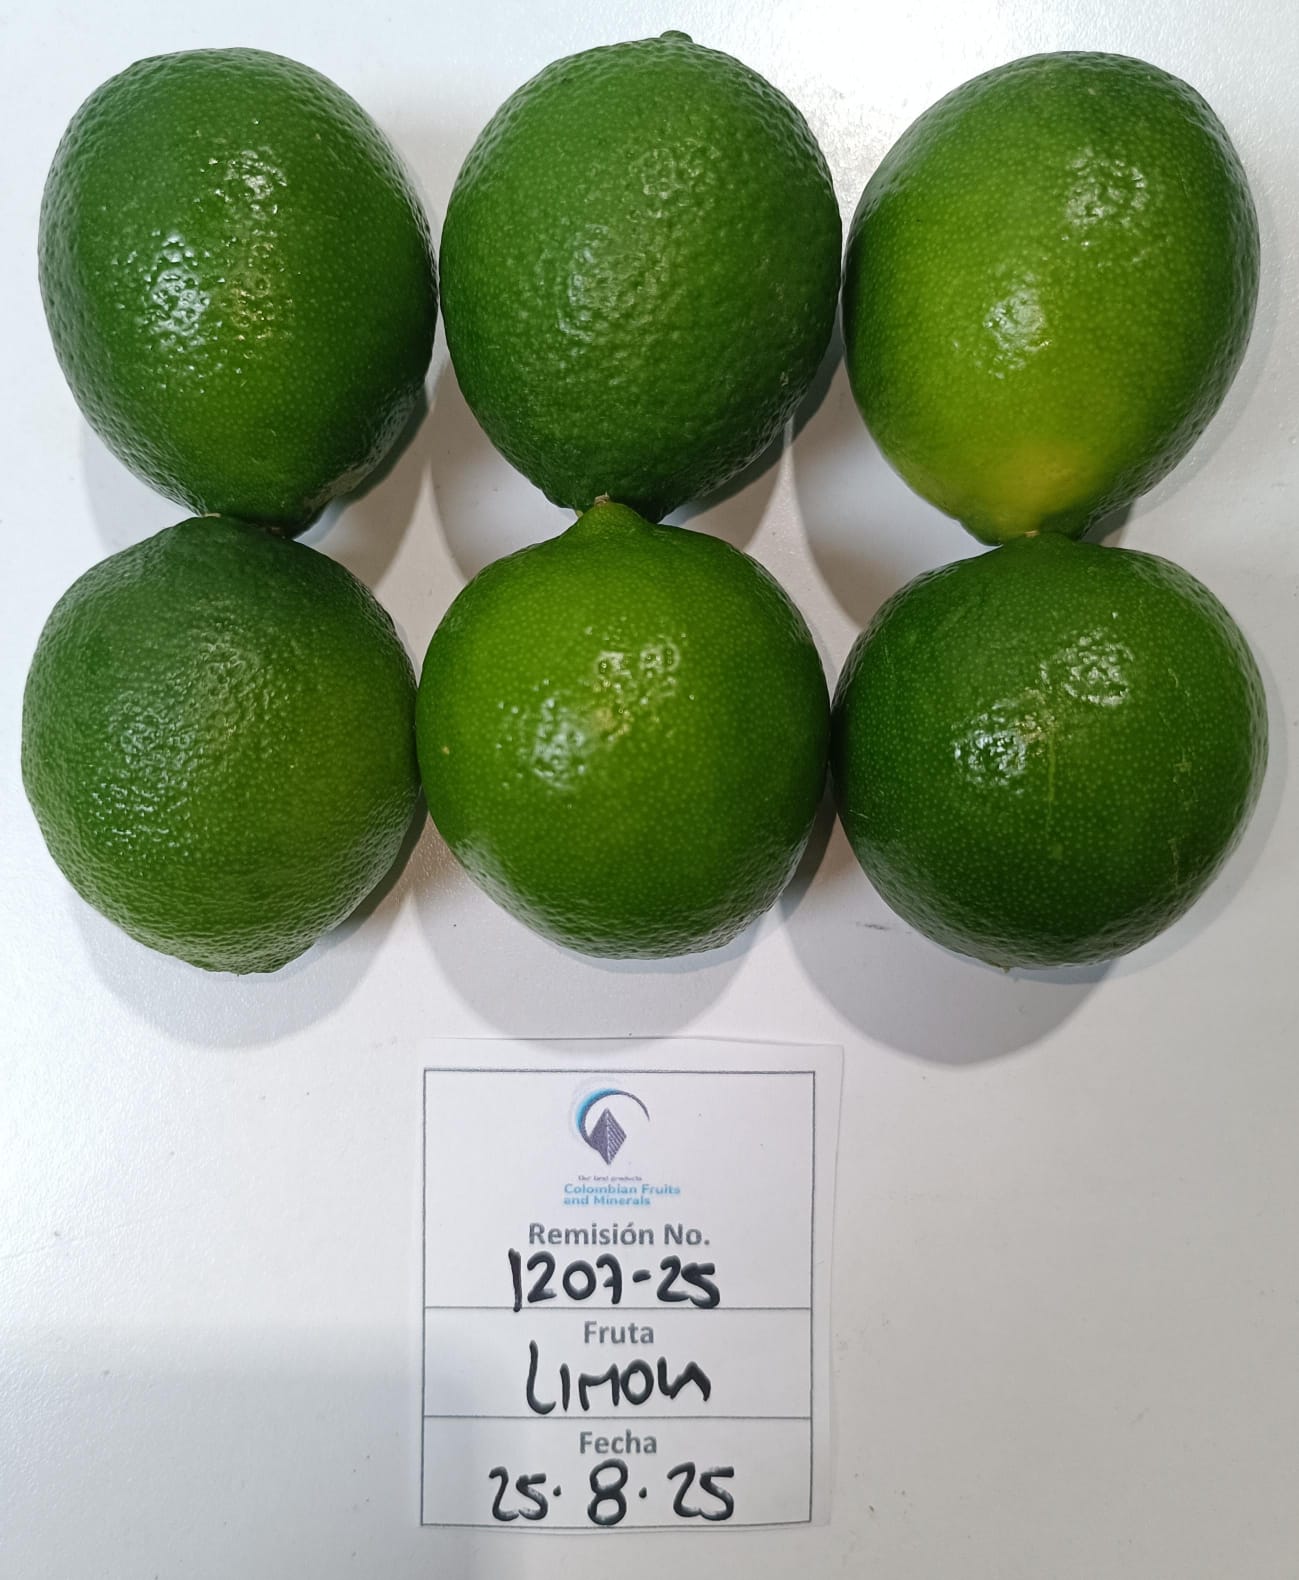 Our land products
Colombian Fruits
and Minerals
Remisión No.
1207-25
Fruta
LIMON
Fecha
25.8.25